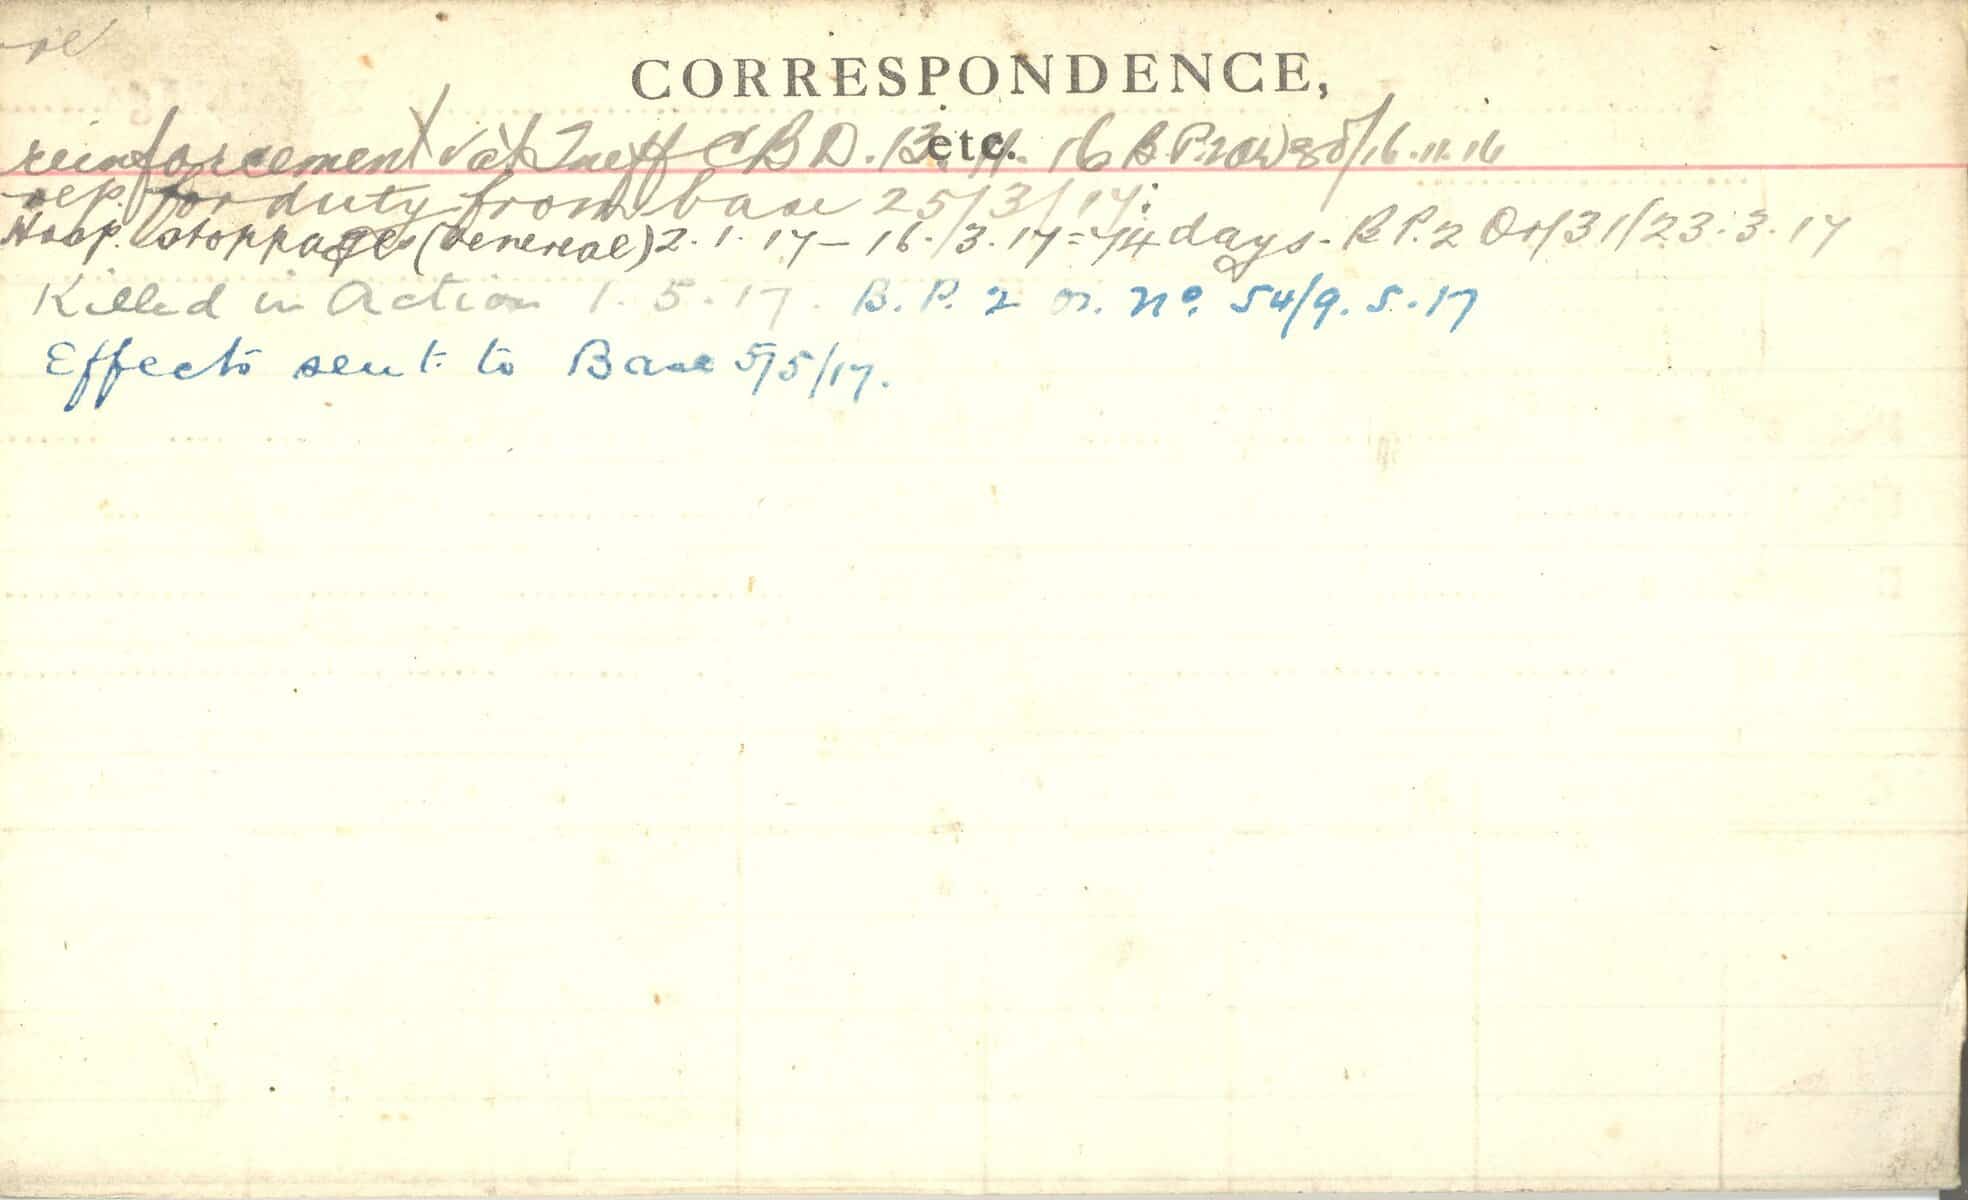 CORRESPONDENCE,
etc.
reinforcement X C B D. 13. 11. 16 B.P.2 Or 16.11.16
rep. for duty from base 25/3/17.
Hosp. stoppages (Venereal) 2.1.17 – 16.3.17 = 74 days. B.P.2 Or/31/23.3.17
Killed in Action 1.5.17. B.P.2 or. No. 54/9.5.17
Effects sent to Base 5/5/17.